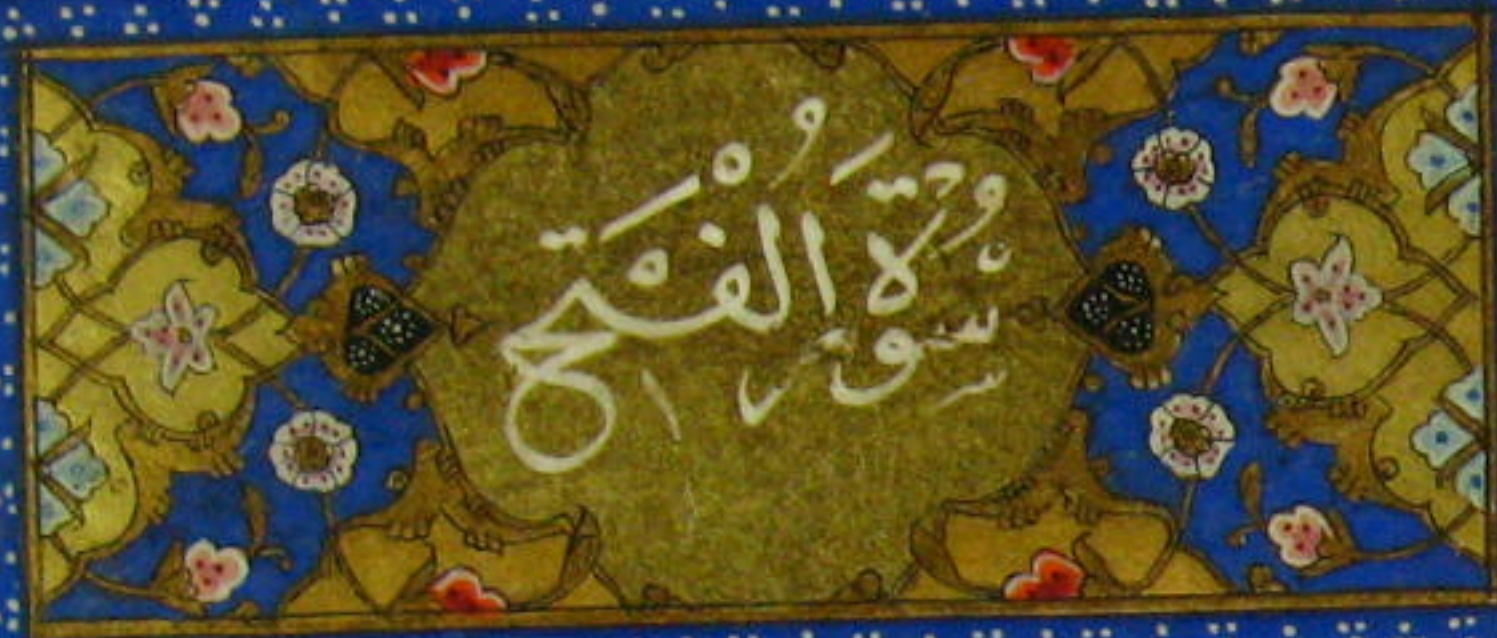 سُورَةُ الْفَتْحِ